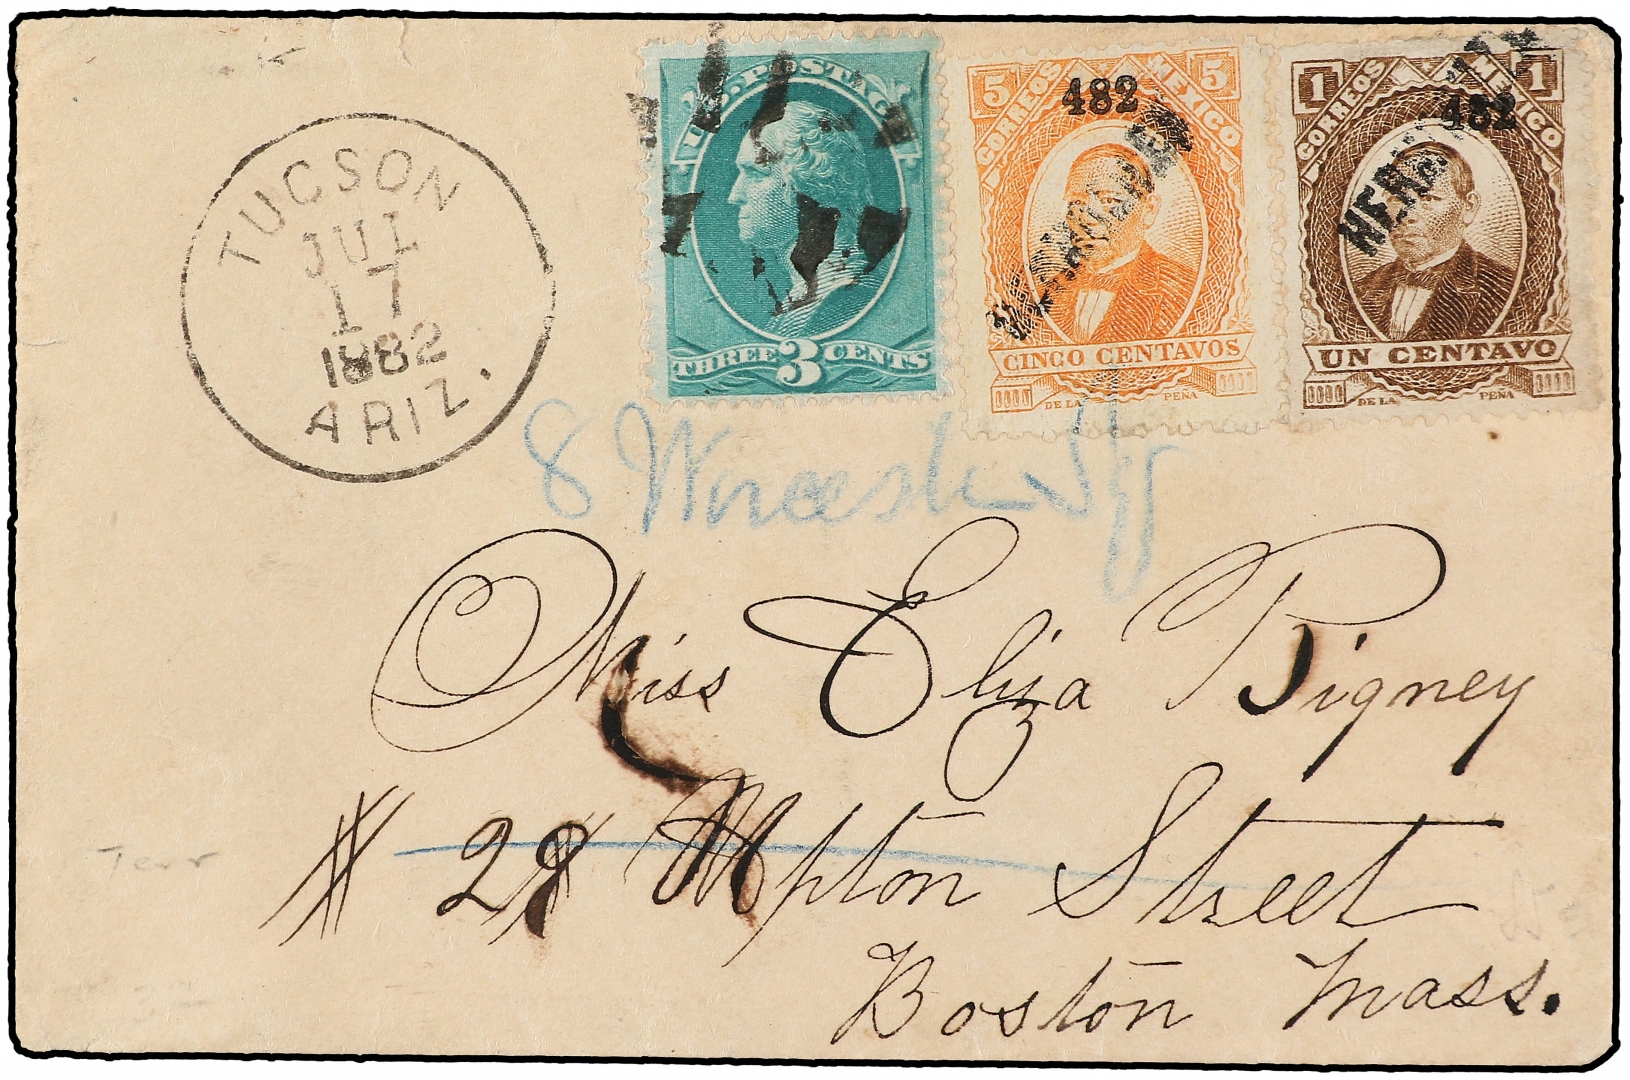 TUCSON
JUL
17
1882
ARIZ.
U.S. POSTAGE
THREE 3 CENTS
5 CORREOS MEXICO 5
482
CINCO CENTAVOS
DE LA PEÑA
1 CORREOS MEXICO 1
482
UN CENTAVO
DE LA PEÑA
8
Miss Eliza Pigney
# 28 Mpton Street
Boston Mass.
Terr